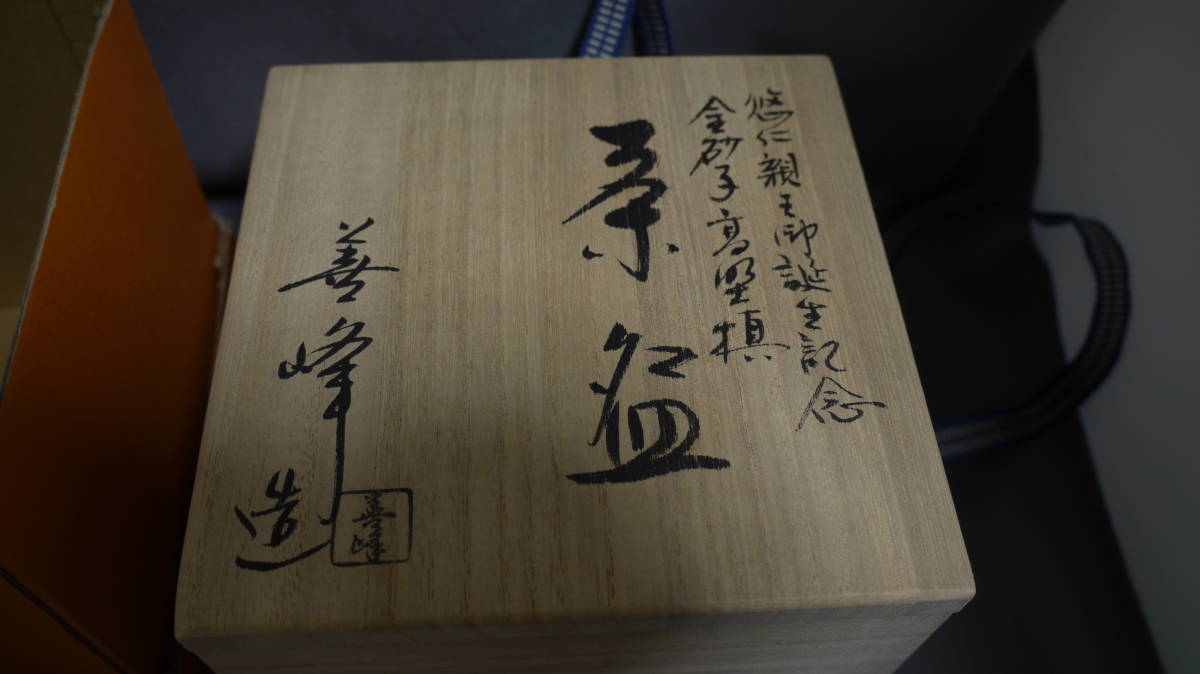 悠仁親王御誕生記念
金砂子高野槙
茶盌
善峰造
善峰